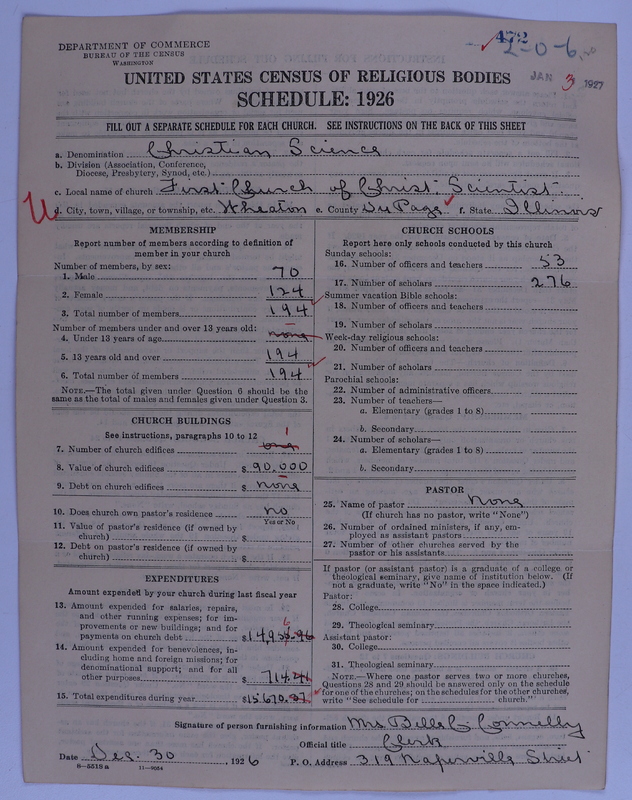 DEPARTMENT OF COMMERCE
BUREAU OF THE CENSUS
WASHINGTON
472
2-0-6
JAN 3 1927
UNITED STATES CENSUS OF RELIGIOUS BODIES
SCHEDULE: 1926
FILL OUT A SEPARATE SCHEDULE FOR EACH CHURCH. SEE INSTRUCTIONS ON THE BACK OF THIS SHEET
a. Denomination Christian Science
b. Division (Association, Conference,
Diocese, Presbytery, Synod, etc.)
c. Local name of church First Church of Christ, Scientist.
d. City, town, village, or township, etc. Wheaton e. County Du Page f. State Illinois
MEMBERSHIP
Report number of members according to definition of
member in your church
Number of members, by sex:
1. Male 70
2. Female 124
3. Total number of members 194
Number of members under and over 13 years old:
4. Under 13 years of age none
5. 13 years old and over 194
6. Total number of members 194
NOTE.—The total given under Question 6 should be the
same as the total of males and females given under Question 3.
CHURCH BUILDINGS
See instructions, paragraphs 10 to 12
1
7. Number of church edifices one
8. Value of church edifices $ 90,000
9. Debt on church edifices $ none
10. Does church own pastor's residence no
Yes or No
11. Value of pastor's residence (if owned by
church) $
12. Debt on pastor's residence (if owned by
church) $
EXPENDITURES
Amount expended by your church during last fiscal year
13. Amount expended for salaries, repairs,
and other running expenses; for im-
provements or new buildings; and for
6
payments on church debt $14,955.96
14. Amount expended for benevolences, in-
cluding home and foreign missions; for
denominational support; and for all
other purposes $ 714.41
15. Total expenditures during year $15,670.37
CHURCH SCHOOLS
Report here only schools conducted by this church
Sunday schools:
16. Number of officers and teachers 53
17. Number of scholars 276
Summer vacation Bible schools:
18. Number of officers and teachers
19. Number of scholars
Week-day religious schools:
20. Number of officers and teachers
21. Number of scholars
Parochial schools:
22. Number of administrative officers
23. Number of teachers—
a. Elementary (grades 1 to 8)
b. Secondary
24. Number of scholars—
a. Elementary (grades 1 to 8)
b. Secondary
PASTOR
25. Name of pastor None
(If church has no pastor, write "None")
26. Number of ordained ministers, if any, em-
ployed as assistant pastors
27. Number of other churches served by the
pastor or his assistants
If pastor (or assistant pastor) is a graduate of a college or
theological seminary, give name of institution below. (If
not a graduate, write "No" in the space indicated.)
Pastor:
28. College
29. Theological seminary
Assistant pastor:
30. College
31. Theological seminary
NOTE.—Where one pastor serves two or more churches,
Questions 28 and 29 should be answered only on the schedule
for one of the churches; on the schedules for the other churches,
write "See schedule for church."
Signature of person furnishing information Mrs Belle C. Connelly
Official title Clerk
Date Dec. 30, 1926 P. O. Address 319 Naperville Street
8—5518a 11—9054